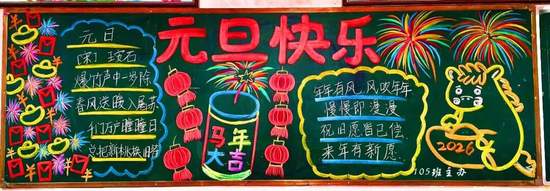 元旦快乐
元日
[宋] 王安石
爆竹声中一岁除
春风送暖入屠苏
千门万户曈曈日
总把新桃换旧符
马年
大吉
年年有风，风吹年年
慢慢即漫漫
祝旧愿皆已偿
来年有新愿.
2026
105班主办